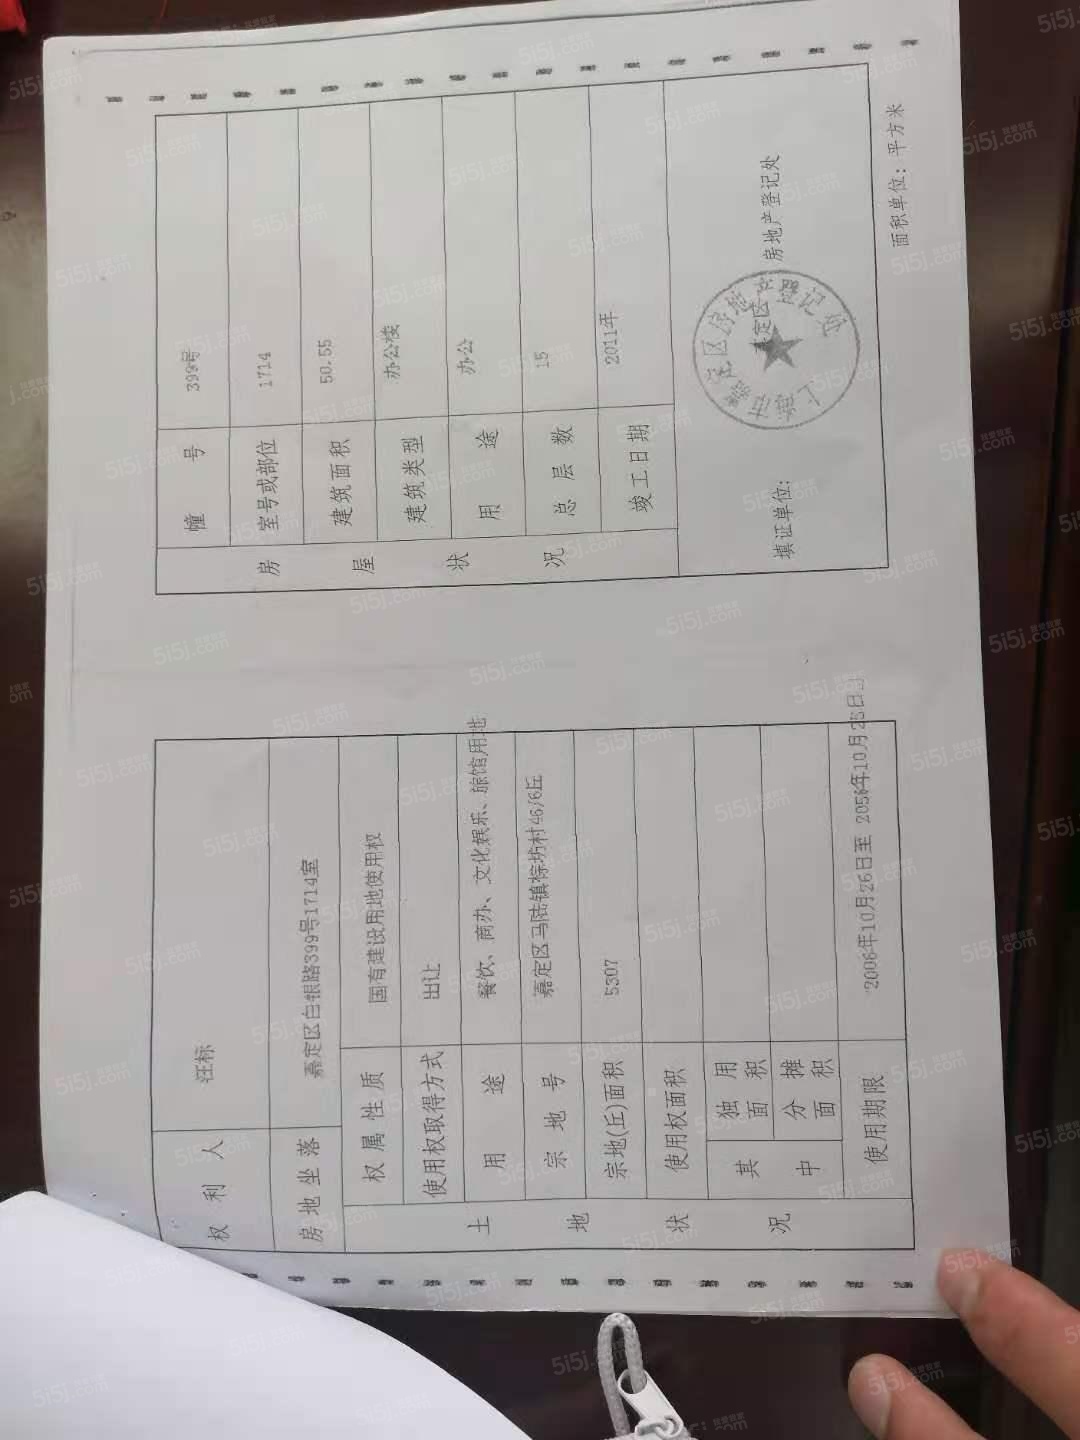 权利人 汪标
房地坐落 嘉定区白银路399号1714室
土地状况
权属性质 国有建设用地使用权
使用权取得方式 出让
用途 餐饮、商办、文化娱乐、旅馆用地
宗地号 嘉定区马陆镇棕坊村46/6丘
宗地(丘)面积 5307
使用权面积
其中
独用面积
分摊面积
使用期限 2006年10月26日至 2056年10月25日
房屋状况
幢号 399号
室号或部位 1714
建筑面积 50.55
建筑类型 办公楼
用途 办公
总层数 15
竣工日期 2011年
填证单位: 嘉定区 房地产登记处
上海市嘉定区房地产登记处
面积单位: 平方米
5i5j.com 我爱我家